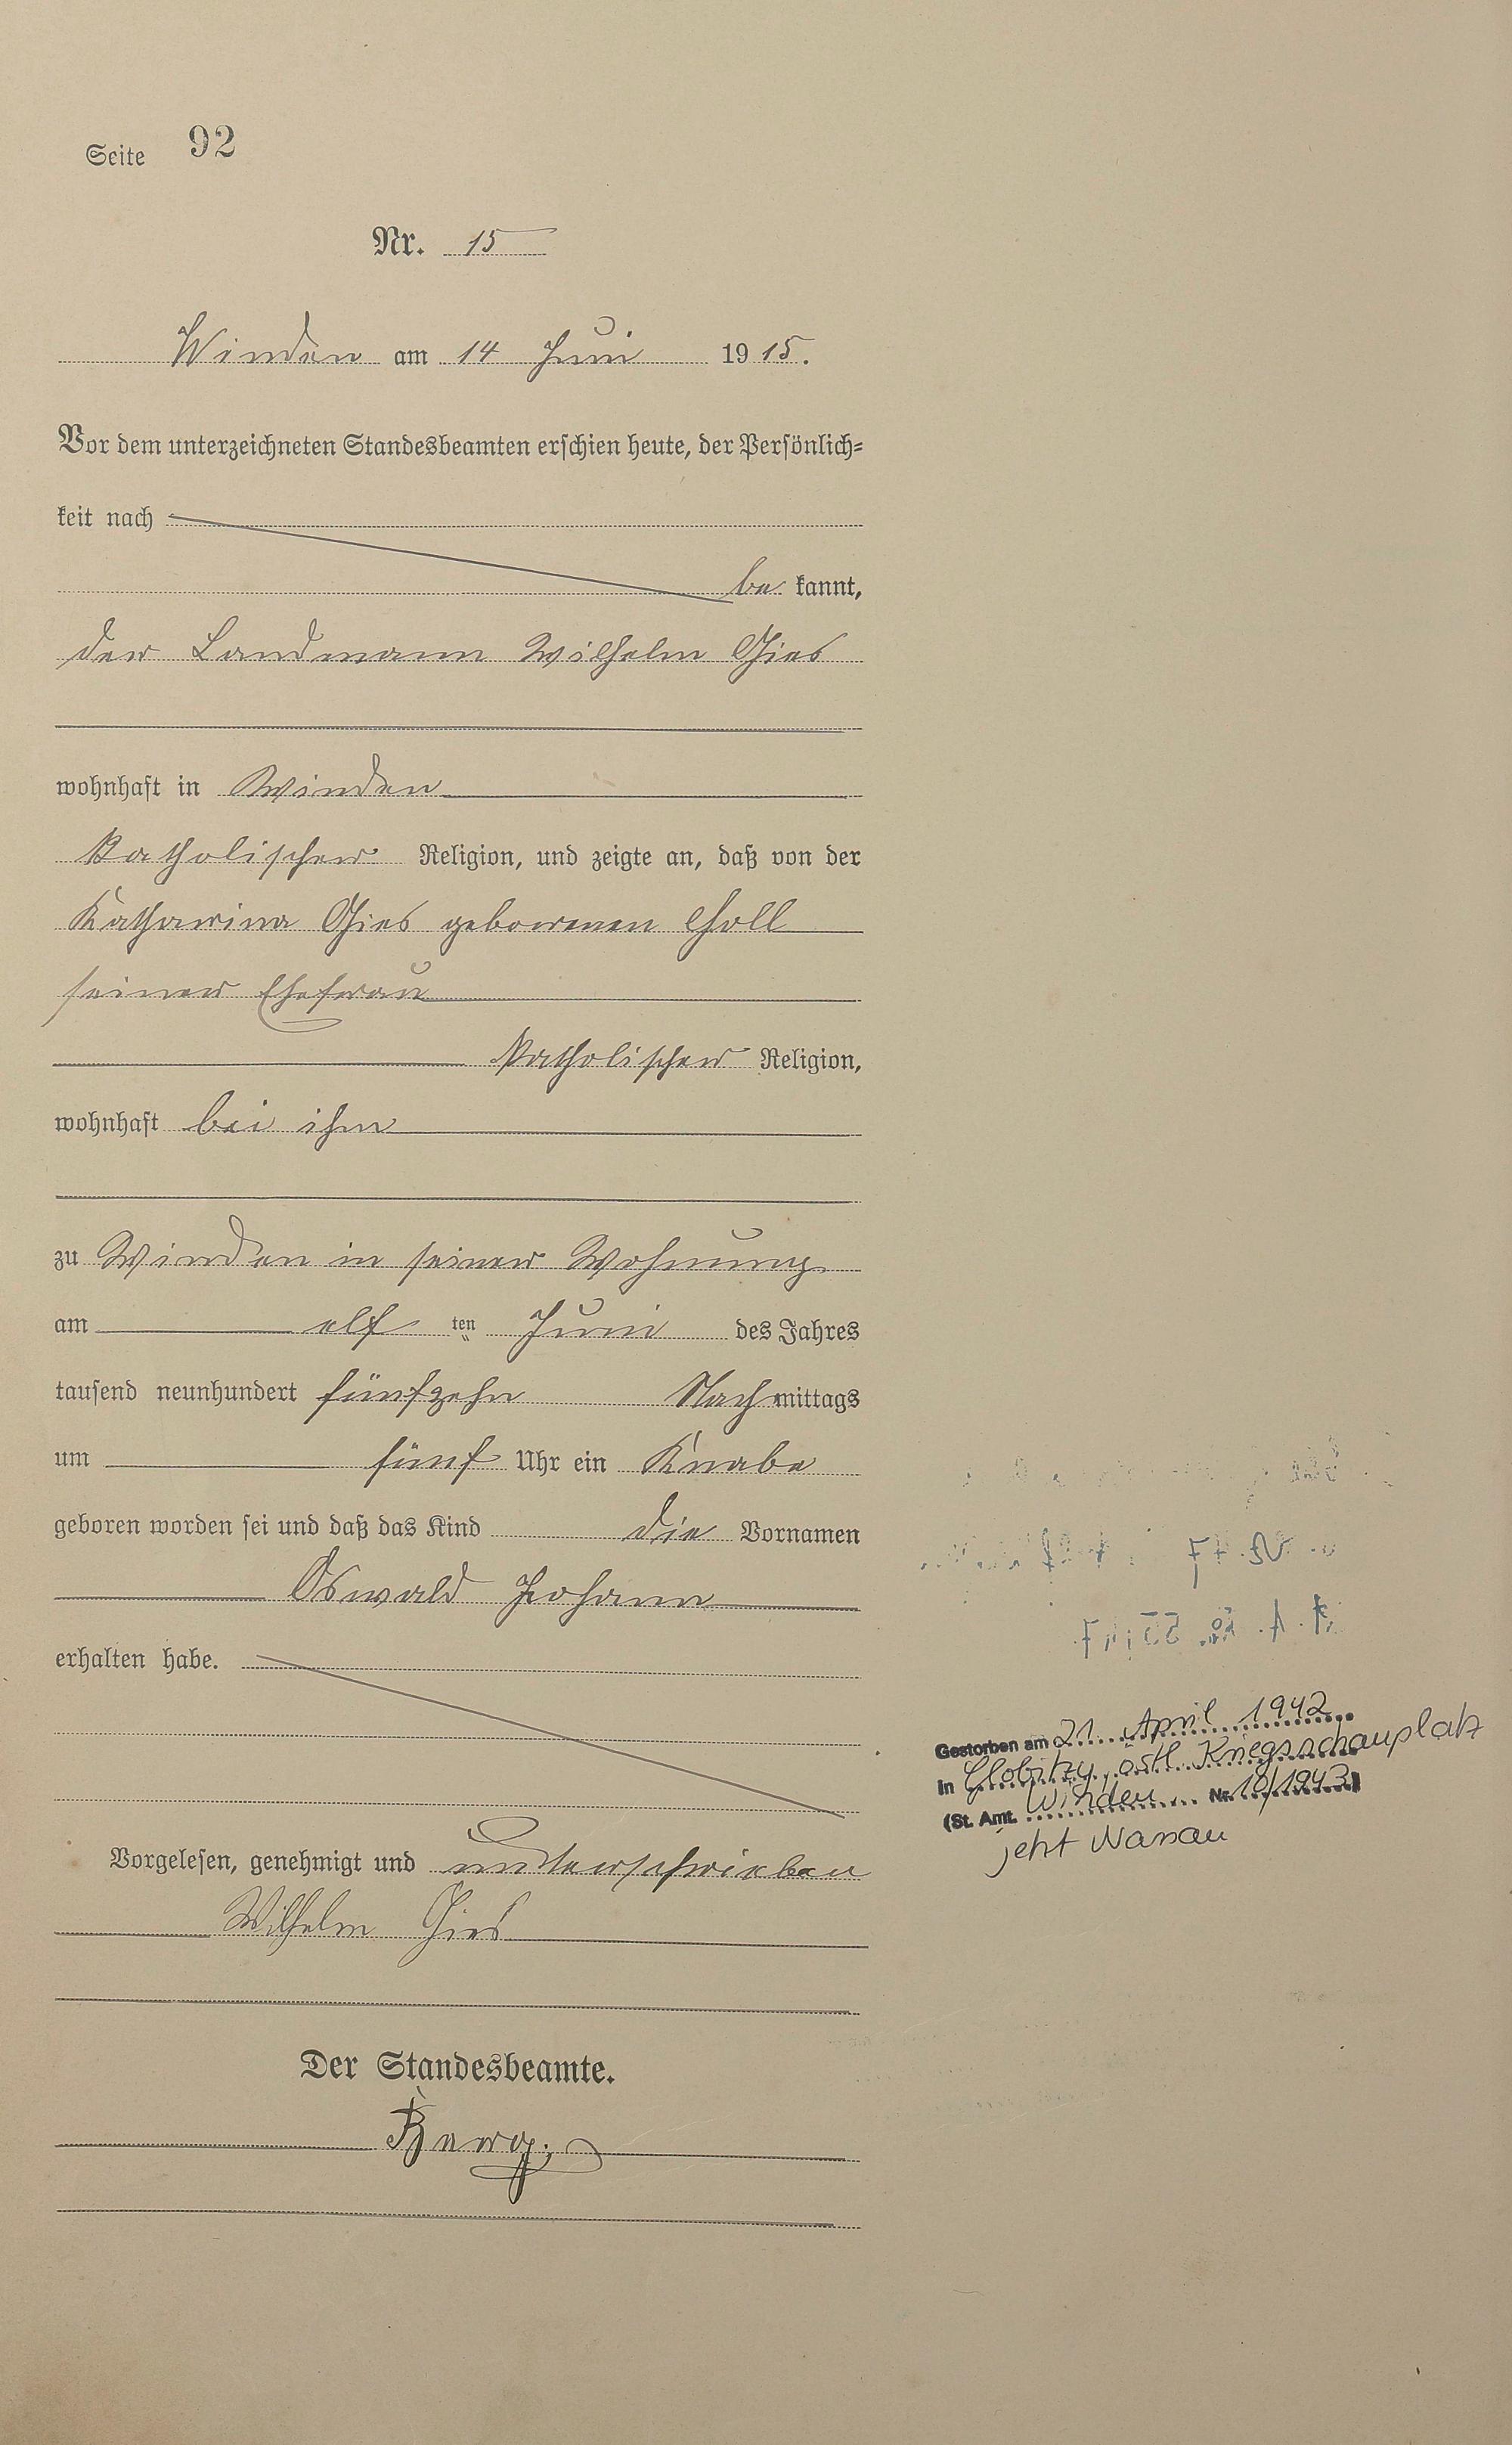 Seite 92
Nr. 15
Winden am 14 Juni 1915.
Vor dem unterzeichneten Standesbeamten erschien heute, der Persönlich=
keit nach
be kannt,
der Landmann Wilhelm Gies
wohnhaft in Winden
katholischer Religion, und zeigte an, daß von der
Katharina Gies geborenen Noll
seiner Ehefrau
katholischer Religion,
wohnhaft bei ihm
zu Winden in seiner Wohnung
am elf ten Juni des Jahres
tausend neunhundert fünfzehn Nachmittags
um fünf Uhr ein Knabe
geboren worden sei und daß das Kind die Vornamen
Oswald Johann
erhalten habe.
Gestorben am 21. April 1942
in Globitzy, östl. Kriegsschauplatz
(St. Amt. Winden Nr. 10/1943)
jetzt Nassau
Vorgelesen, genehmigt und unterschrieben
Wilhelm Gies
Der Standesbeamte.
Berg.